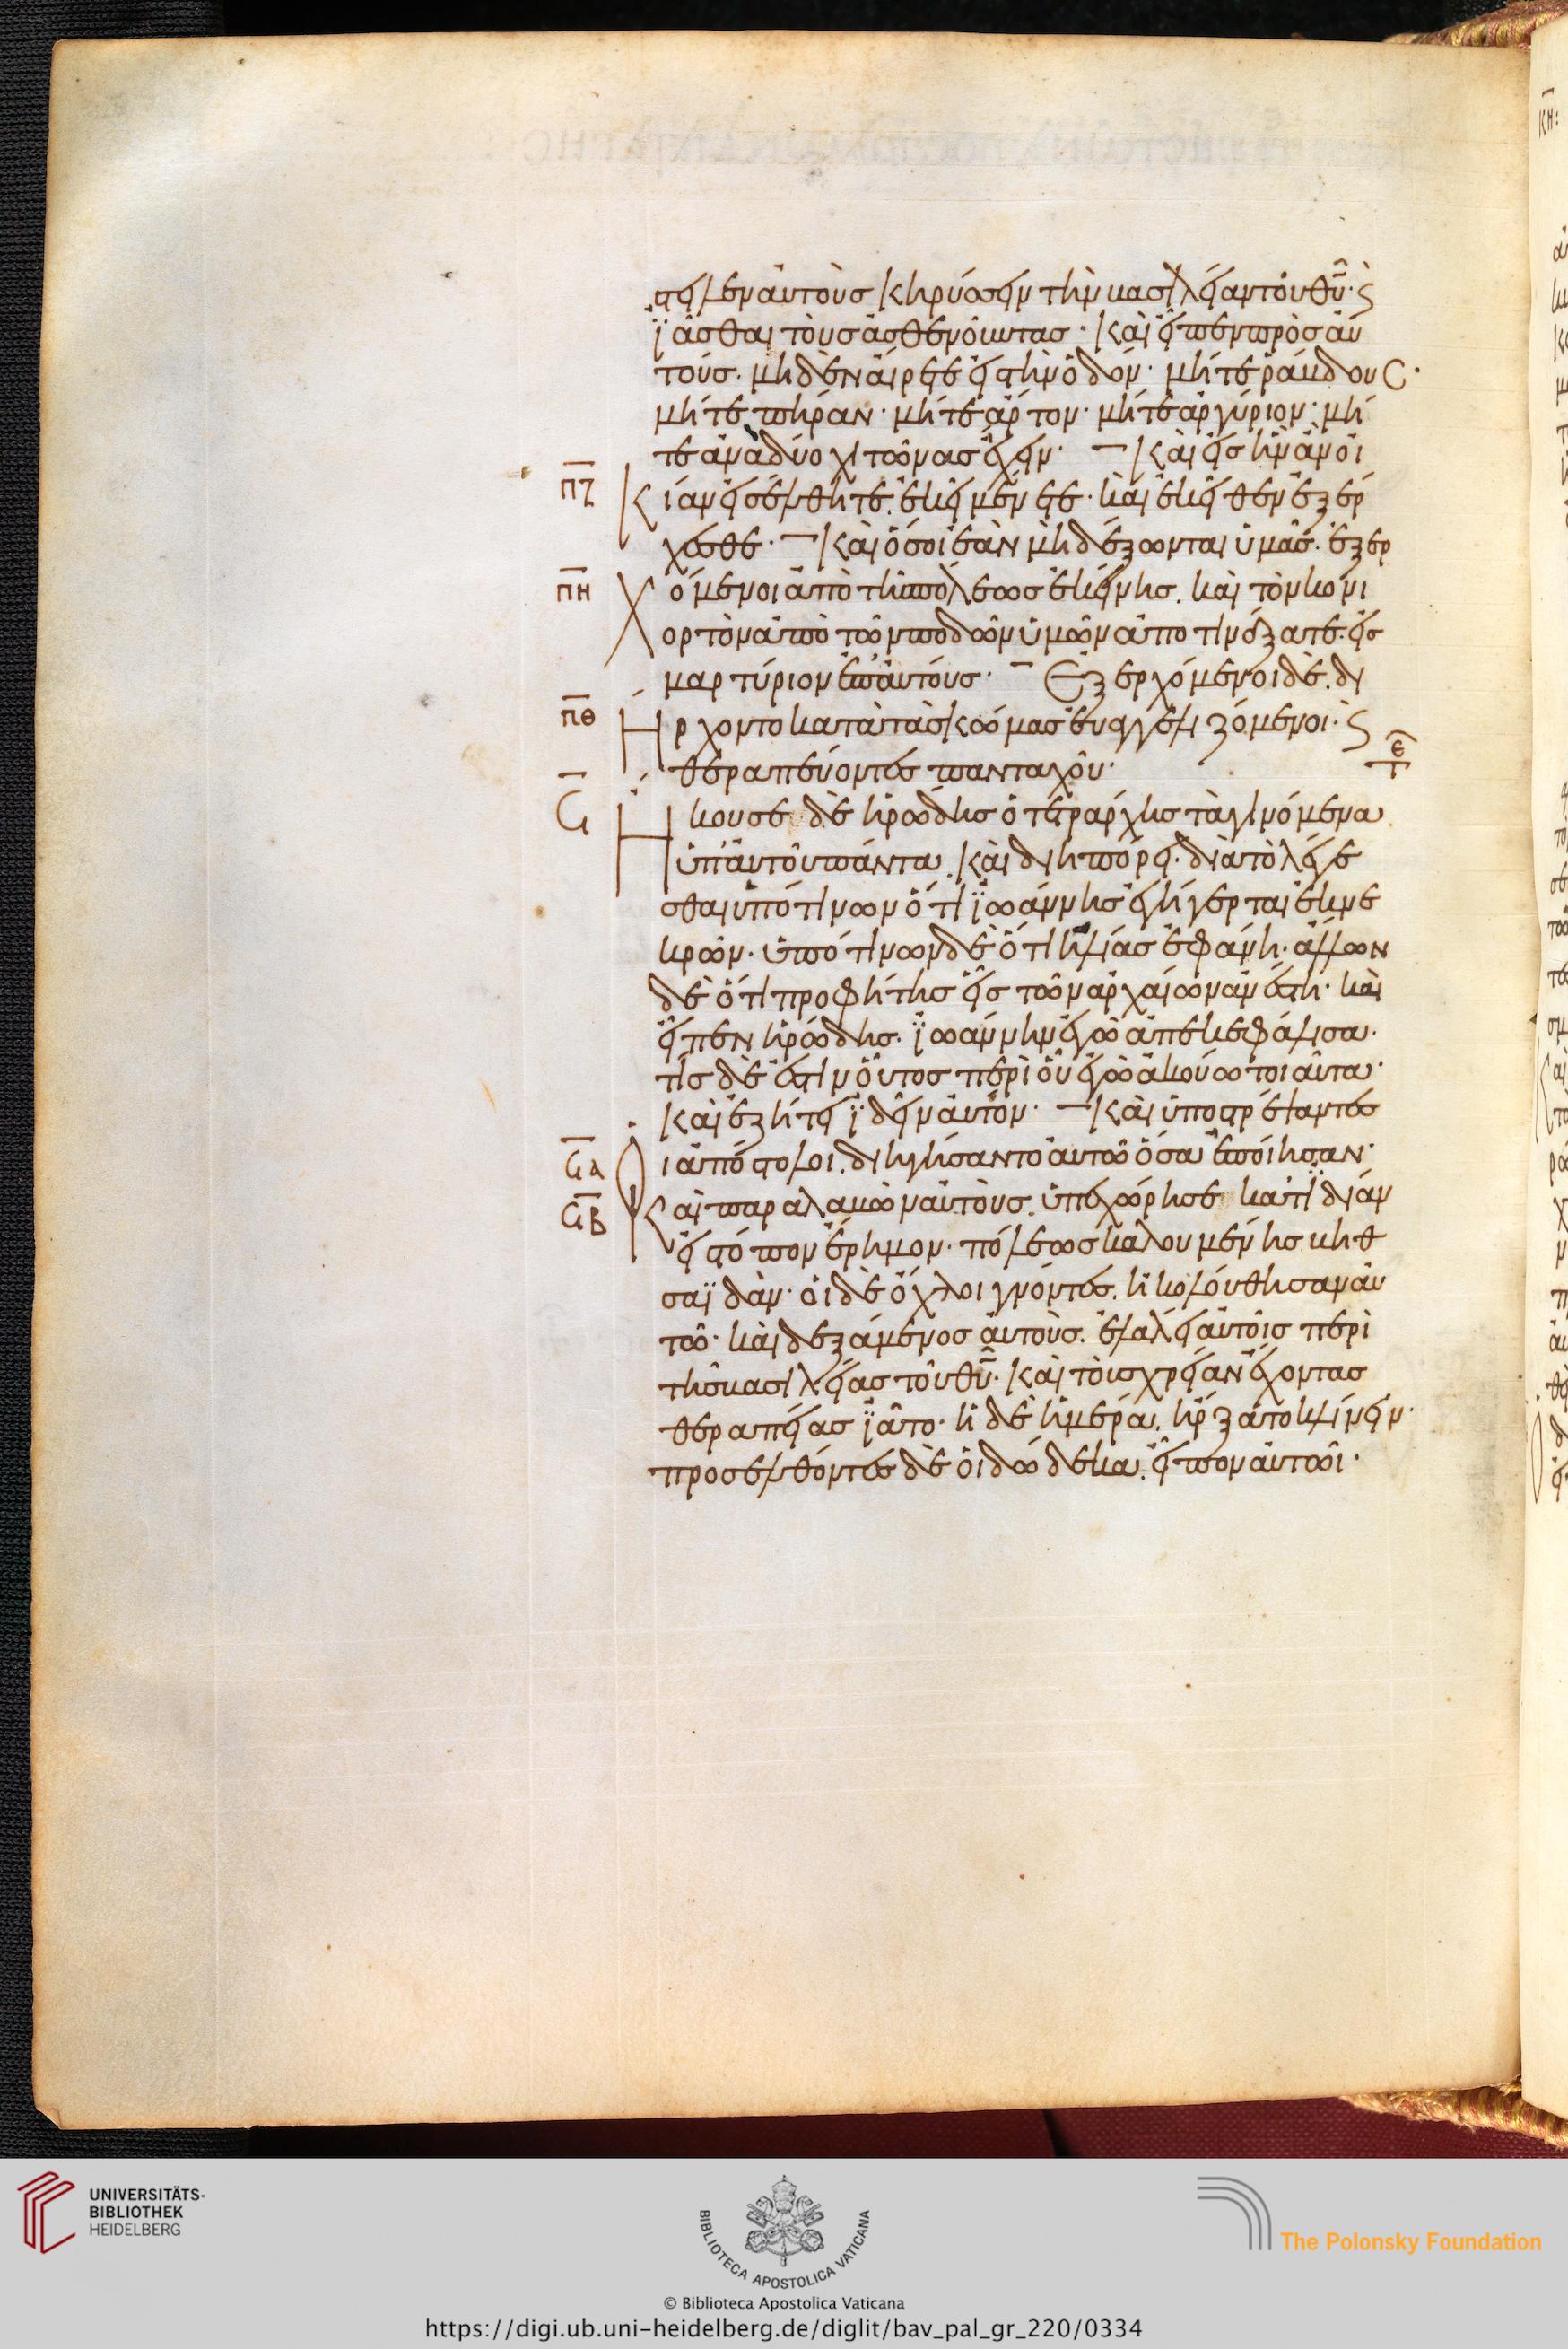 στειλεν αὐτοὺς κηρύσσειν τὴν βασιλείαν τοῦ θῦ· ϛ
ϊᾶσθαι τοὺς ἀσθενοῦντας· καὶ εἶπεν πρὸς αὐ
τούς. μηδὲν αἴρετε εἰς τὴν ὁδόν· μήτε ῥάβδους·
μήτε πήραν· μήτε ἄρτον· μήτε ἀργύριον· μή
τε ἀνὰ δύο χιτῶνας ἔχειν· καὶ εἰς ἣν ἂν οἰ
πζ κίαν εἰσέλθητε. ἐκεῖ μένετε· καὶ ἐκεῖθεν ἐξέρ
χεσθε· καὶ ὅσοι ἐὰν μὴ δέξωνται ὑμᾶς. ἐξερ
πη χόμενοι ἀπὸ τῆς πόλεως ἐκείνης. καὶ τὸν κονι
ορτὸν ἀπὸ τῶν ποδῶν ὑμῶν ἀποτινάξατε. εἰς
μαρτύριον ἐπ' αὐτούς· Ἐξερχόμενοι δὲ. δι
πθ ήρχοντο κατὰ τὰς κώμας εὐαγγελιζόμενοι· ϛ
θεραπεύοντες πανταχοῦ·
ϟ Ἤκουσε δὲ ἡρώδης ὁ τετράρχης τὰ γινόμενα
ὑπ' αὐτοῦ πάντα. καὶ διηπόρει. διὰ τὸ λέγε
σθαι ὑπό τινων ὅτι ϊωάννης ἐγήγερται ἐκ νε
κρῶν· ὑπό τινων δὲ ὅτι ἠλίας ἐφάνη· ἄλλων
δὲ ὅτι προφήτης εἷς τῶν ἀρχαίων ἀνέστη· καὶ
εἶπεν ἡρώδης. ϊωάννην ἐγὼ ἀπεκεφάλισα.
τίς δέ ἐστιν οὗτος περὶ οὗ ἐγὼ ἀκούω τοιαῦτα·
καὶ ἐζήτει ϊδεῖν αὐτόν· καὶ ὑποστρέψαντες
ϟα οἱ ἀπόστολοι. διηγήσαντο αὐτῶ ὅσα ἐποίησαν·
ϟβ καὶ παραλαβὼν αὐτοὺς. ὑπεχώρησε κατ' ϊδίαν
εἰς τόπον ἔρημον· πόλεως καλουμένης βηθ
σαϊδὰν· οἱ δὲ ὄχλοι γνόντες. ἠκολούθησαν αὐ
τῶ· καὶ δεξάμενος αὐτοὺς. ἐλάλει αὐτοῖς περὶ
τῆς βασιλείας τοῦ θῦ· καὶ τοὺς χρείαν ἔχοντας
θεραπείας ϊᾶτο· ἡ δὲ ἡμέρα. ἤρξατο κλίνειν·
προσελθόντες δὲ οἱ δώδεκα. εἶπον αὐτῶι·
UNIVERSITÄTS-
BIBLIOTHEK
HEIDELBERG
BIBLIOTECA APOSTOLICA VATICANA
The Polonsky Foundation
© Biblioteca Apostolica Vaticana
https://digi.ub.uni-heidelberg.de/diglit/bav_pal_gr_220/0334